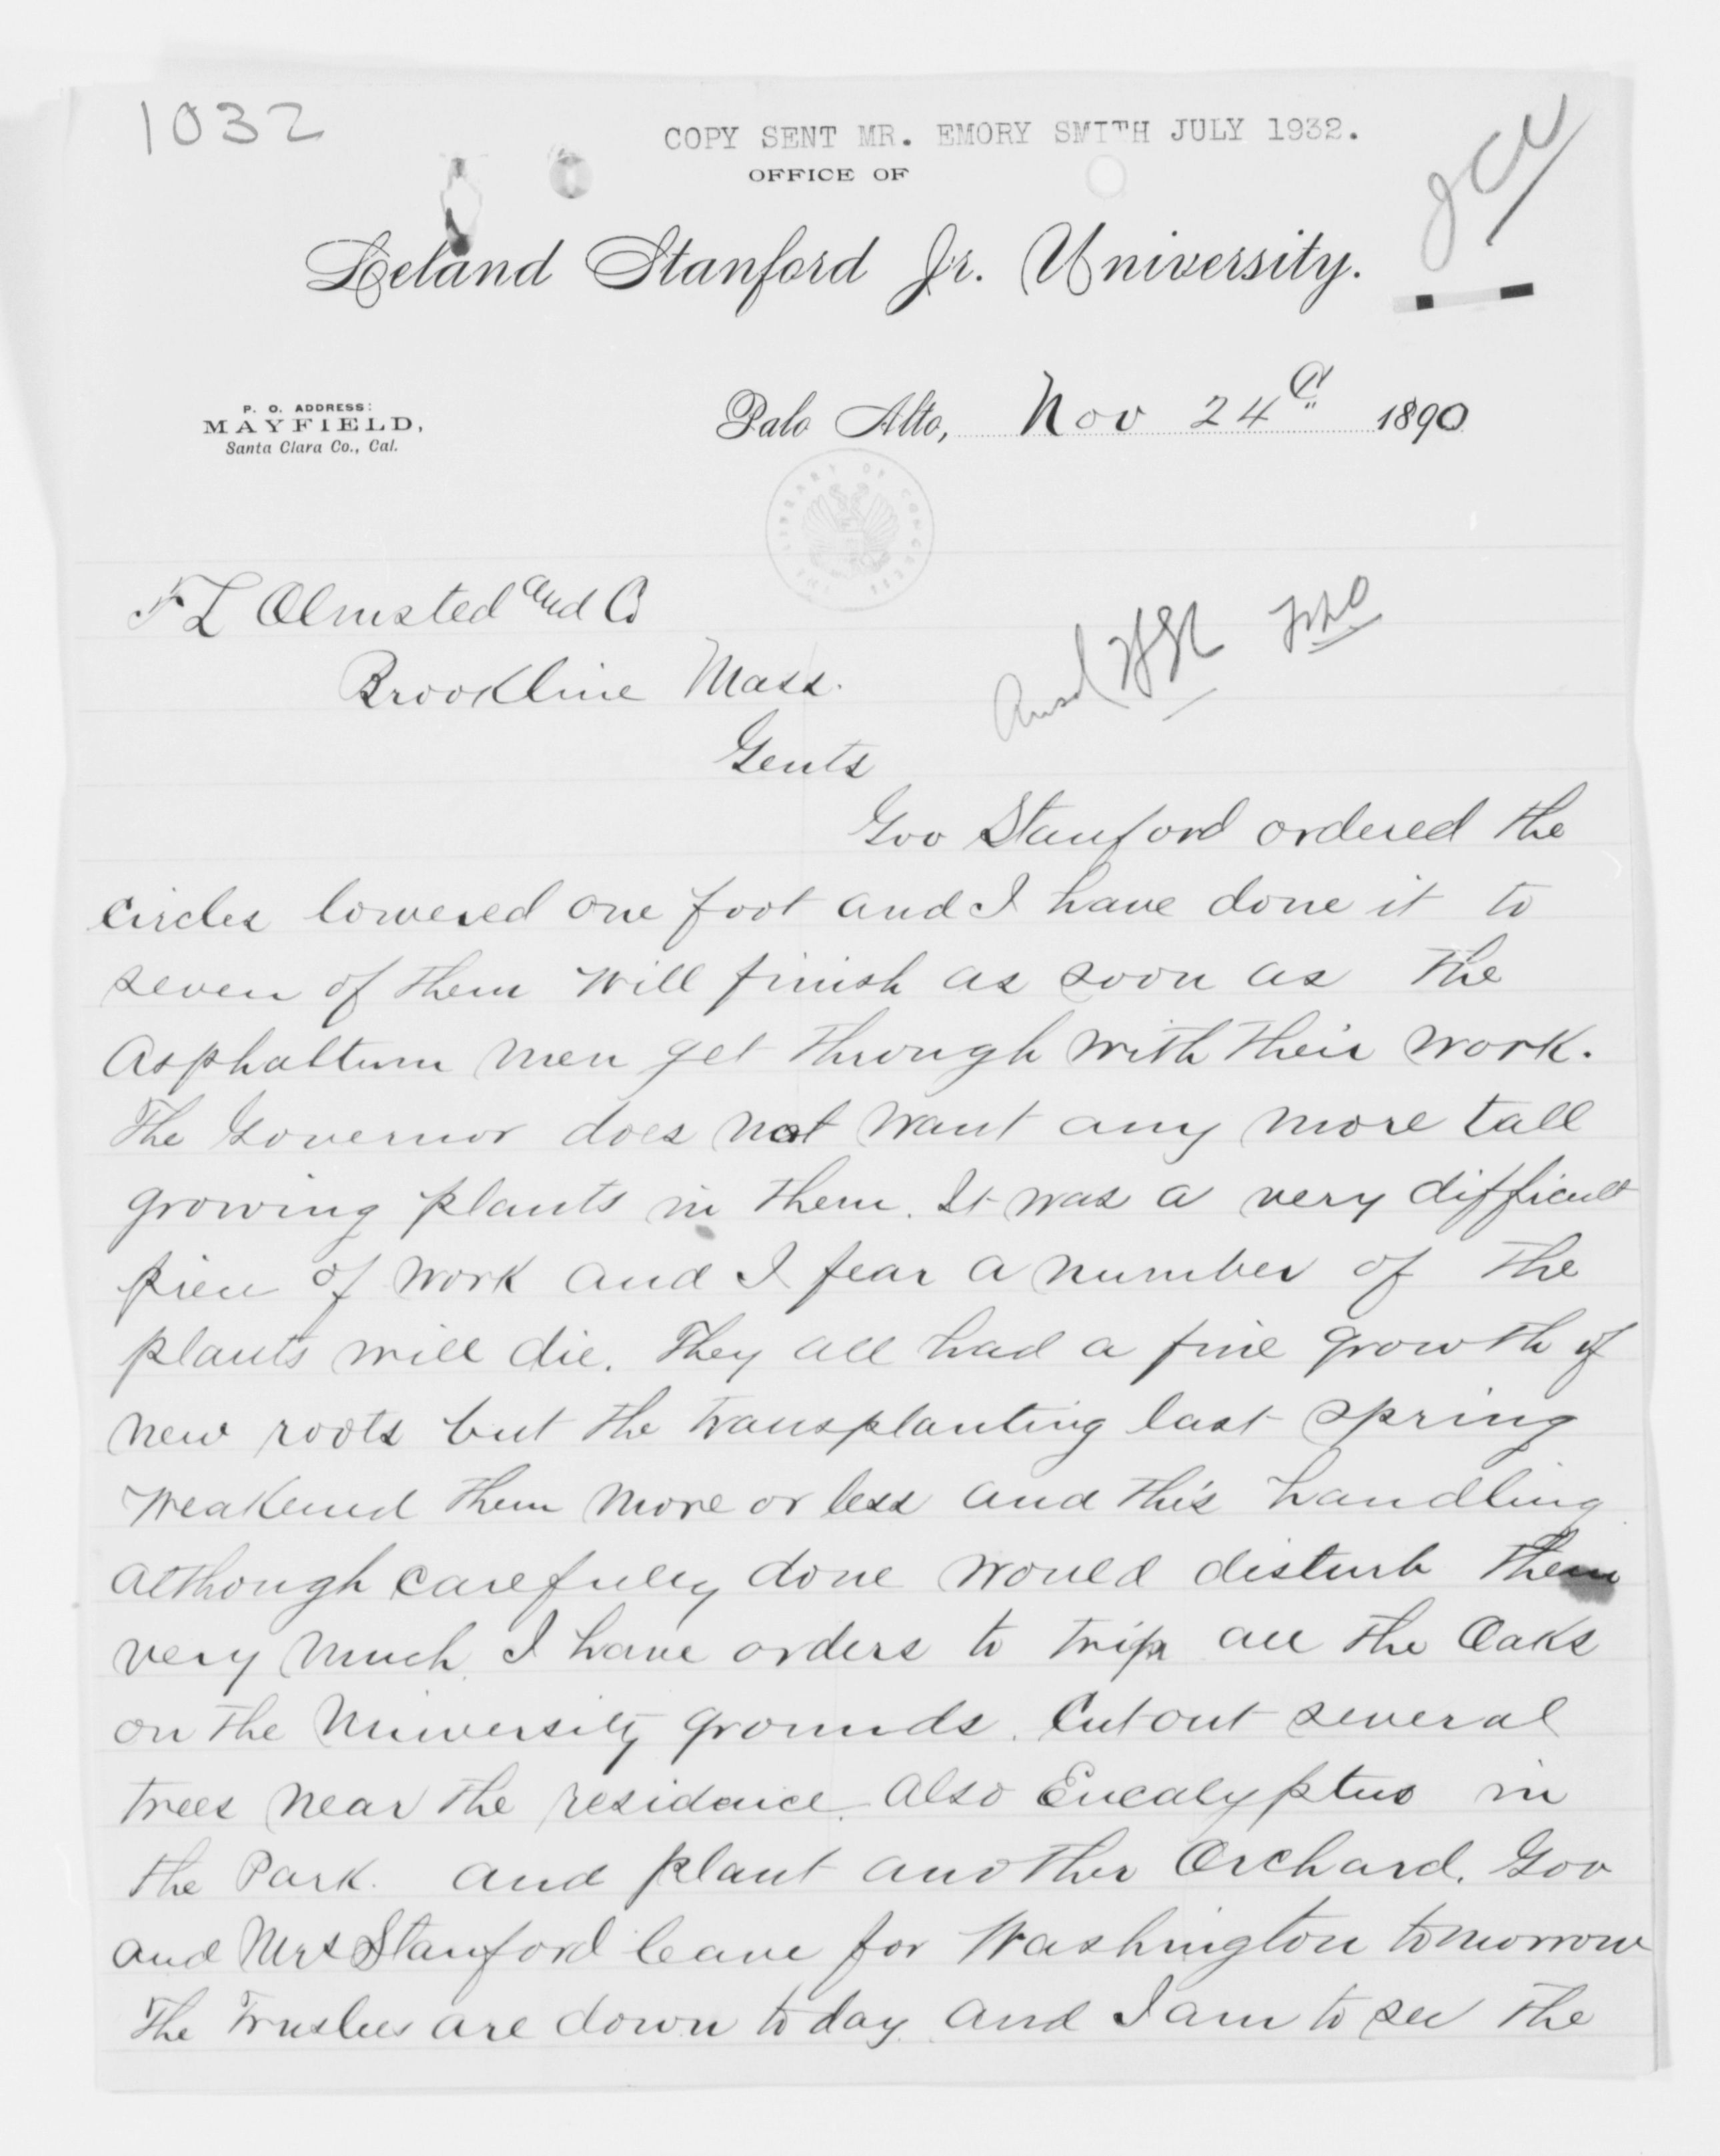 1032
COPY SENT MR. EMORY SMITH JULY 1932.
OFFICE OF
Leland Stanford Jr. University.
P. O. ADDRESS:
MAYFIELD,
Santa Clara Co., Cal.
Palo Alto, Nov 24th 1890
THE LIBRARY OF CONGRESS
F L Olmsted and Co
Brookline Mass.
Gents
Gov Stanford ordered the
circles lowered one foot and I have done it to
seven of them will finish as soon as the
Asphaltum men get through with their work.
The Governor does not want any more tall
growing plants in them. It was a very difficult
piece of work and I fear a number of the
plants will die. They all had a fine growth of
new roots but the transplanting last spring
weakened them more or less and this handling
although carefully done would disturb them
very much. I have orders to trip all the Oaks
on the University grounds. Cut out several
trees near the residence. Also Eucalyptus in
the Park. and plant another Orchard. Gov
and Mrs Stanford leave for Washington tomorrow
The Trustees are down today and I am to see the